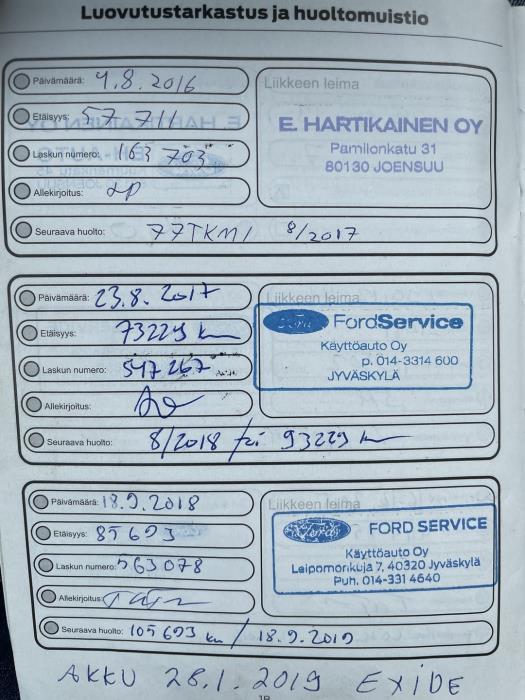 Luovutustarkastus ja huoltomuistio
Päivämäärä: 4.8.2016
Liikkeen leima
Etäisyys: 57 711
E. HARTIKAINEN OY
Pamilonkatu 31
80130 JOENSUU
Laskun numero: 163 703
Allekirjoitus:
Seuraava huolto: 77TKM/ 8/2017
Päivämäärä: 23.8.2017
Liikkeen leima
Etäisyys: 73229 km
Ford FordService
Käyttöauto Oy
p. 014-3314 600
JYVÄSKYLÄ
Laskun numero: 547267
Allekirjoitus:
Seuraava huolto: 8/2018 / 93229 km
Päivämäärä: 18.9.2018
Liikkeen leima
Etäisyys: 85693
Ford FORD SERVICE
Käyttöauto Oy
Laipomorikuja 7, 40320 Jyväskylä
Puh. 014-331 4640
Laskun numero: 563078
Allekirjoitus:
Seuraava huolto: 105693 km / 18.9.2019
AKKU 28.1.2019 EXIDE